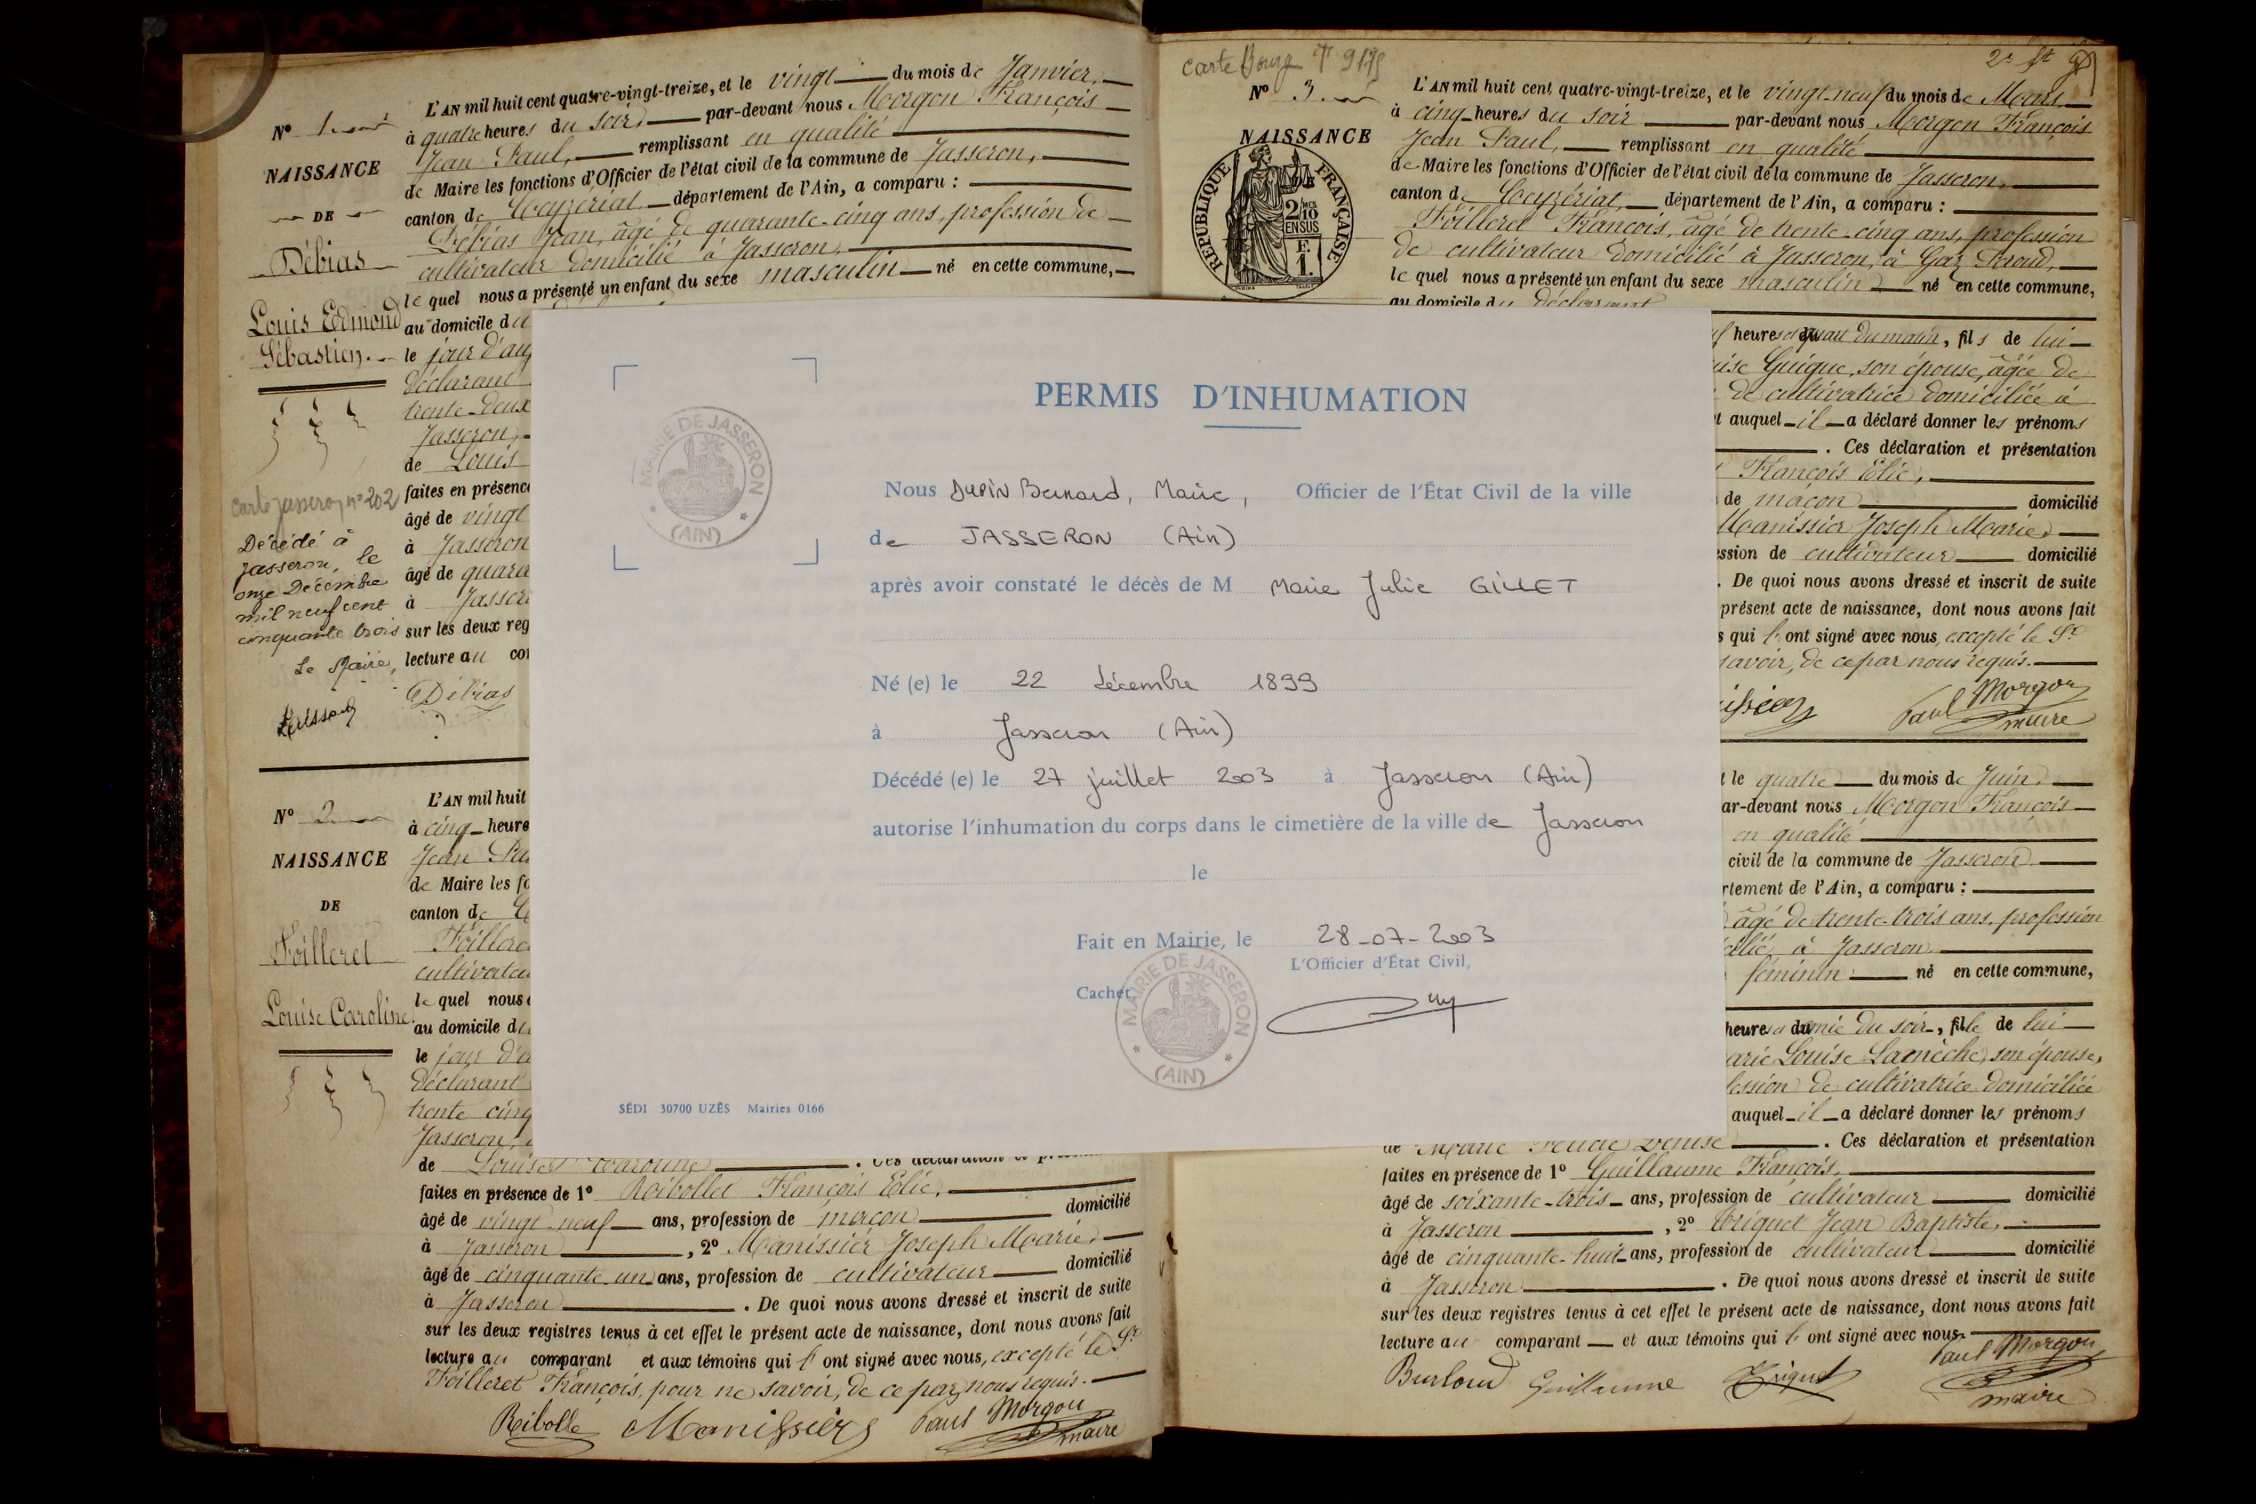 Nº 1.
NAISSANCE
DE
Débias
Louis Edmond
Sébastien.
carte Jasseron nº 202
Décédé à
Jasseron, le
onze Décembre
mil neuf cent
cinquante trois
Le Maire,
L'AN mil huit cent quatre-vingt-treize, et le vingt du mois de Janvier,
à quatre heures du soir, par-devant nous Morgon François
Jean Paul, remplissant en qualité
de Maire les fonctions d'Officier de l'état civil de la commune de Jasseron,
canton de Ceyzériat département de l'Ain, a comparu :
Débias Jean, âgé de quarante-cinq ans, profession de
cultivateur domicilié à Jasseron,
le quel nous a présenté un enfant du sexe masculin né en cette commune,
au domicile du
le jour d'au
déclarant
trente-deux
Jasseron,
de Louis
faites en présence
âgé de vingt
à Jasseron
âgé de quara
à Jasser
sur les deux reg
lecture au co
Débias
Nº 2
NAISSANCE
DE
Foilleret
Louise Caroline
L'AN mil huit
à cinq heure
Jean Pau
de Maire les fo
canton de C
Foillere
cultivateu
le quel nous
au domicile du
le jour d'a
déclarant
trente cinq
Jasseron,
de Louise Caroline . Ces déclaration et
faites en présence de 1º Ribollet François Elie,
âgé de vingt-neuf ans, profession de maçon domicilié
à Jasseron , 2º Manissier Joseph Marie,
âgé de cinquante-un ans, profession de cultivateur domicilié
à Jasseron . De quoi nous avons dressé et inscrit de suite
sur les deux registres tenus à cet effet le présent acte de naissance, dont nous avons fait
lecture au comparant et aux témoins qui ont signé avec nous, excepté le Sr
Foilleret François, pour ne savoir, de ce par nous requis.
Ribolle Manissier Paul Morgon
maire
PERMIS D'INHUMATION
MAIRIE DE JASSERON
* (AIN) *
Nous DUPIN Bernard, Maire, Officier de l'État Civil de la ville
de JASSERON (Ain)
après avoir constaté le décès de M Marie Julie GILLET
Né (e) le 22 décembre 1899
à Jasseron (Ain)
Décédé (e) le 27 juillet 2003 à Jasseron (Ain)
autorise l'inhumation du corps dans le cimetière de la ville de Jasseron
le
Fait en Mairie, le 28-07-2003
L'Officier d'État Civil,
Cachet,
MAIRIE DE JASSERON
* (AIN) *
SÉDI 30700 UZÈS Mairies 0166
carte Bourg
Nº 3.
NAISSANCE
RÉPUBLIQUE FRANÇAISE
2/10
EN SUS
F.
1.
L'AN mil huit cent quatre-vingt-treize, et le vingt-neuf du mois de Mars
à cinq heures du soir par-devant nous Morgon François
Jean Paul, remplissant en qualité
de Maire les fonctions d'Officier de l'état civil de la commune de Jasseron,
canton de Ceyzériat, département de l'Ain, a comparu :
Foilleret François, âgé de trente-cinq ans, profession
de cultivateur domicilié à Jasseron,
le quel nous a présenté un enfant du sexe masculin né en cette commune,
au domicile du déclarant
heures du matin, fils de lui
ise Guigue, son épouse, âgée de
de cultivatrice domiciliée à
t auquel il a déclaré donner les prénoms
. Ces déclaration et présentation
François Elie,
de maçon domicilié
Manissier Joseph Marie,
ession de cultivateur domicilié
. De quoi nous avons dressé et inscrit de suite
présent acte de naissance, dont nous avons fait
s qui ont signé avec nous, excepté le Sr
savoir, de ce par nous requis.
Paul Morgon
maire
t le quatre du mois de Juin,
ar-devant nous Morgon François
en qualité
civil de la commune de Jasseron
rtement de l'Ain, a comparu :
âgé de trente-trois ans, profession
cilié à Jasseron
féminin né en cette commune,
heures du soir, fille de lui
arie Louise Lamèche, son épouse,
fession de cultivatrice domiciliée
auquel il a déclaré donner les prénoms
de Marie Denise . Ces déclaration et présentation
faites en présence de 1º Guillaume François,
âgé de soixante-trois ans, profession de cultivateur domicilié
à Jasseron , 2º Triquet Jean Baptiste,
âgé de cinquante-huit ans, profession de cultivateur domicilié
à Jasseron . De quoi nous avons dressé et inscrit de suite
sur les deux registres tenus à cet effet le présent acte de naissance, dont nous avons fait
lecture au comparant et aux témoins qui ont signé avec nous.
Burloud Guillaume Triquet Paul Morgon
maire